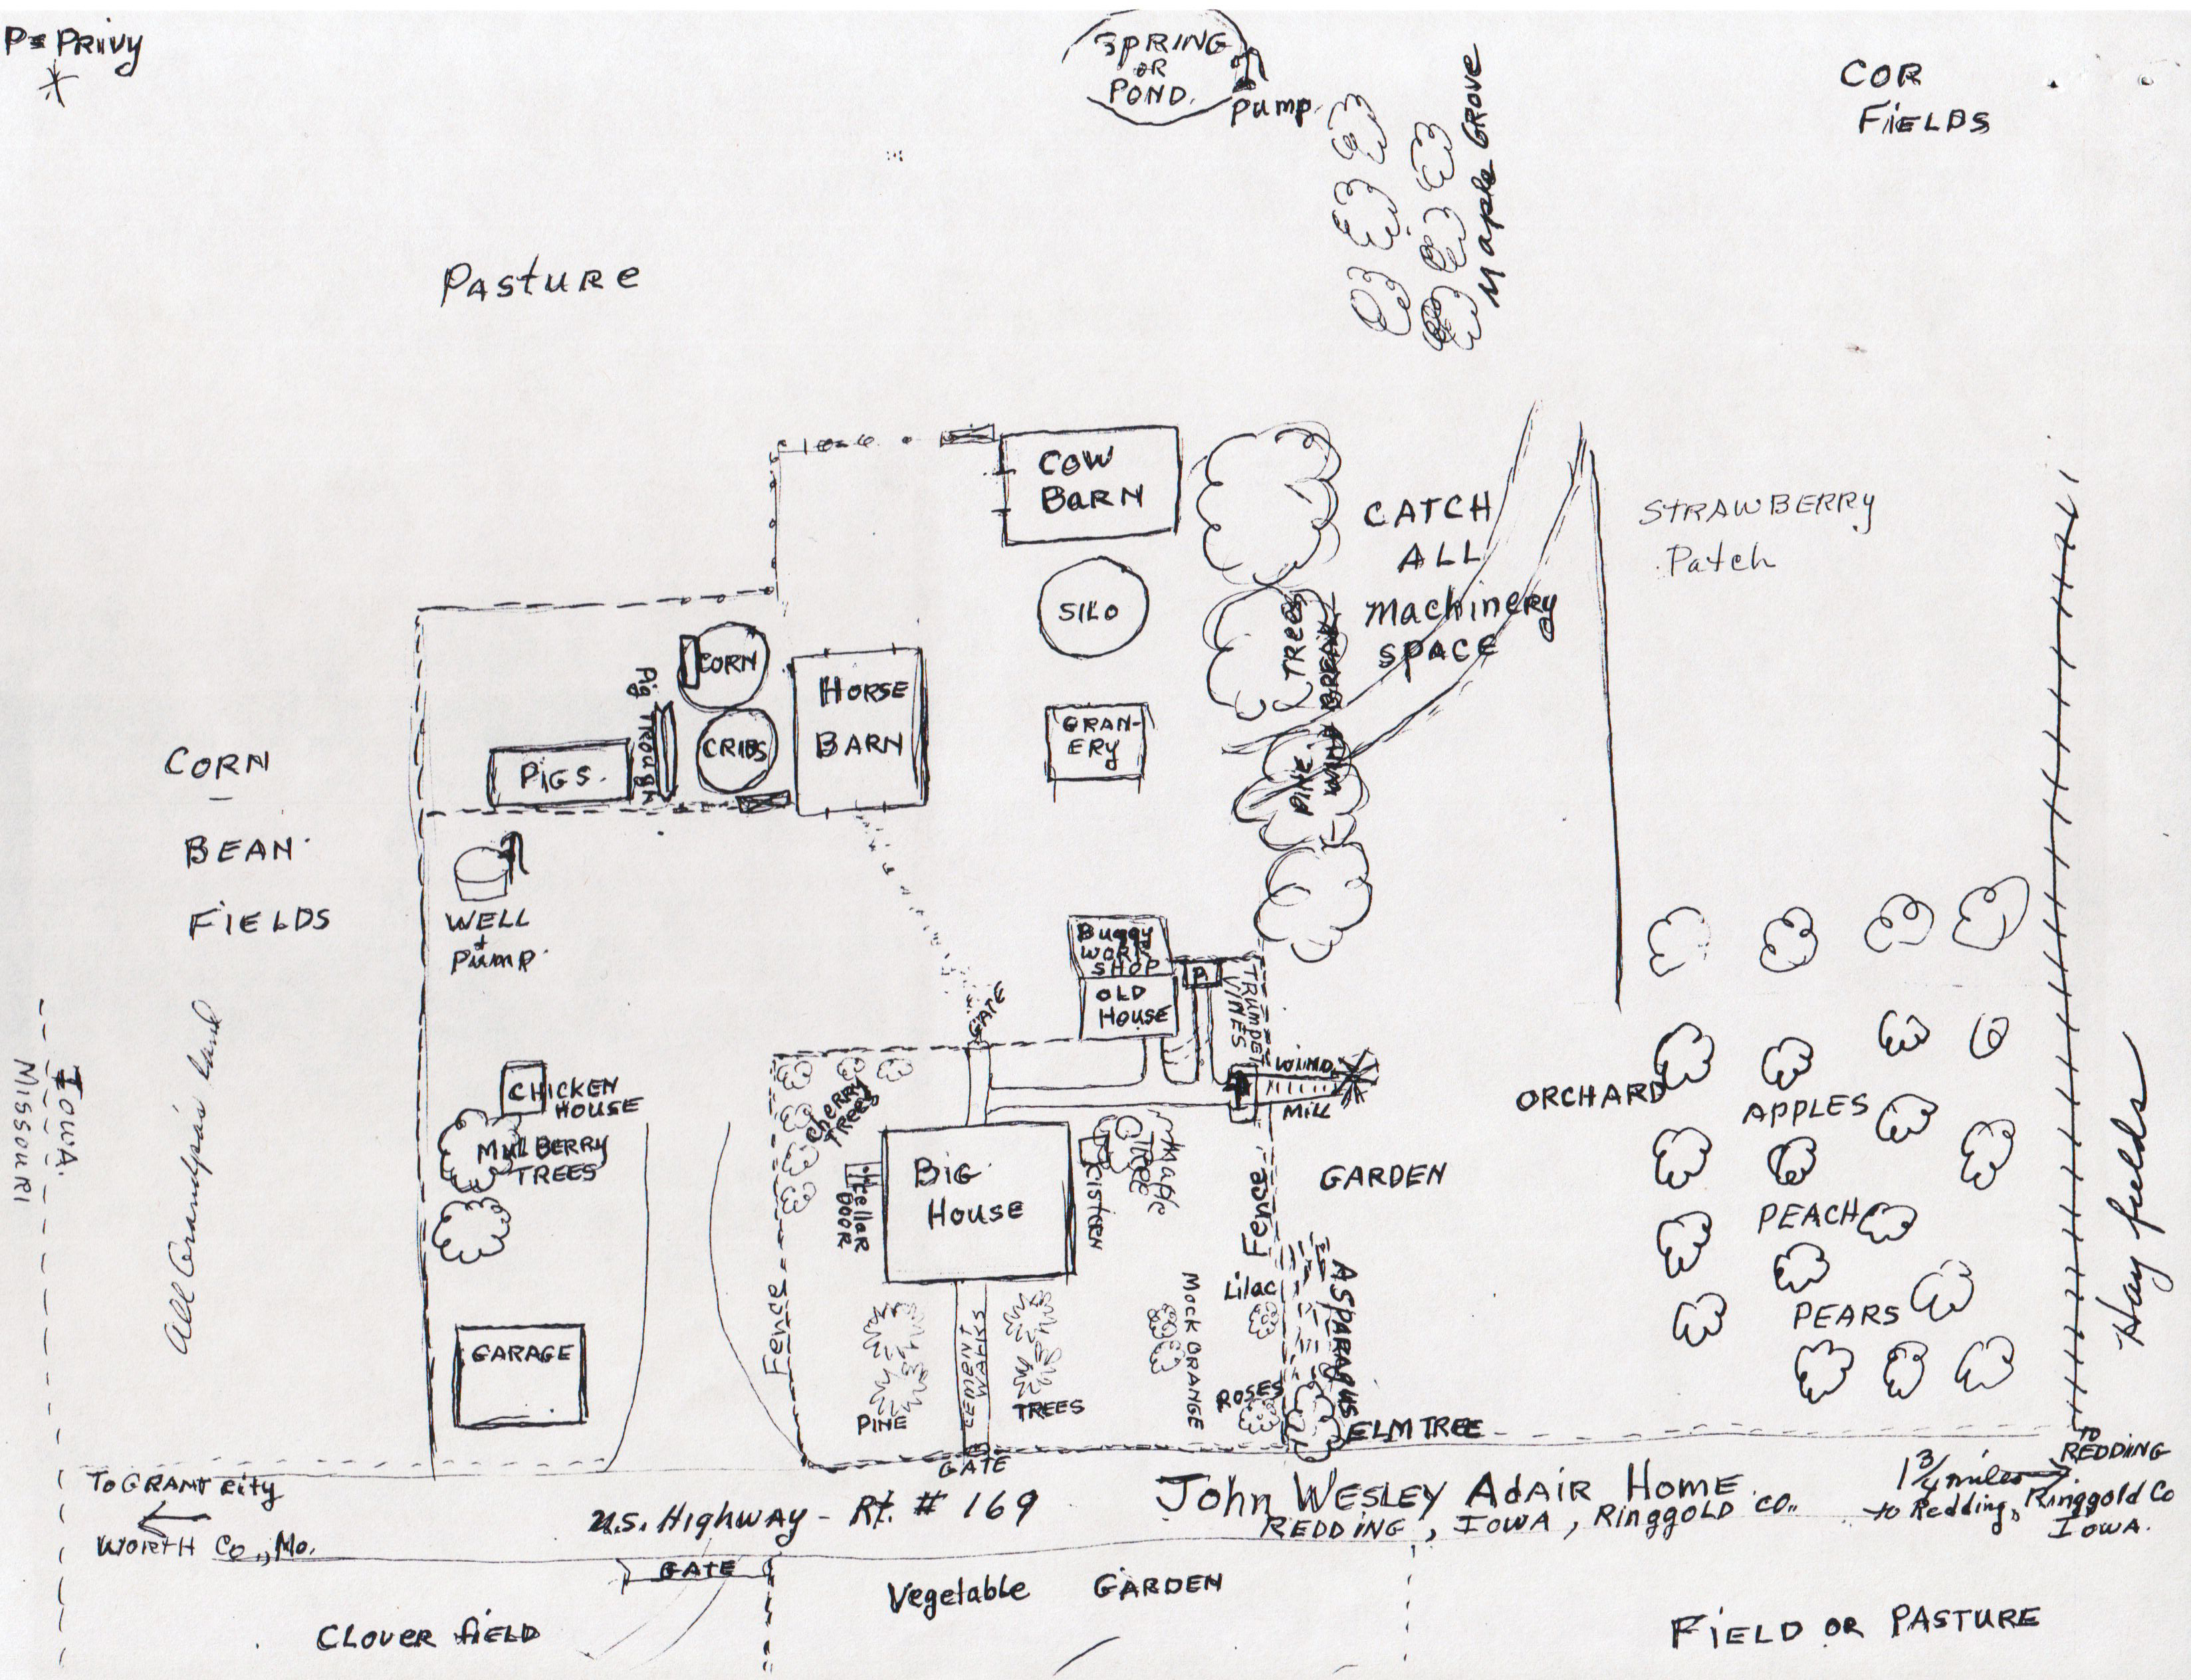 P= PRIVY
SPRING
OR
POND.
Pump.
Maple GROVE
COR
FIELDS
PASTURE
COW
BARN
SILO
GRAN-
ERY
CORN
CRIBS
HORSE
BARN
PIGS.
Pig TROUGH
TREES
PINE
WIND BREAK
CATCH
ALL
MACHINERY
SPACE
STRAWBERRY
Patch
CORN
BEAN
FIELDS
WELL
+
PUMP.
All Grandpa's land
IOWA.
MISSOURI
Buggy
WORK
SHOP
OLD
HOUSE
P
TRUMPET
VINES
GATE
WIND
MILL
CHICKEN
HOUSE
MULBERRY
TREES
CHERRY
TREES
Cellar
DOOR
BIG
HOUSE
CISTERN
Maple
TREE
FENCE
GARDEN
ORCHARD
APPLES
PEACH
PEARS
Hay fields
GARAGE
FENCE
PINE
CEMENT
WALKS
TREES
MOCK ORANGE
Lilac
ROSES
ASPARAGUS
ELM TREE
GATE
TO GRANT City
WORTH Co., Mo.
U.S. Highway - Rt. # 169
John WESLEY AdAIR Home
REDDING, IOWA, RINGGOLD CO.
1 3/4 miles
to Redding,
TO
REDDING
Ringgold Co
IOWA.
GATE
Vegetable GARDEN
CLOVER FIELD
FIELD OR PASTURE